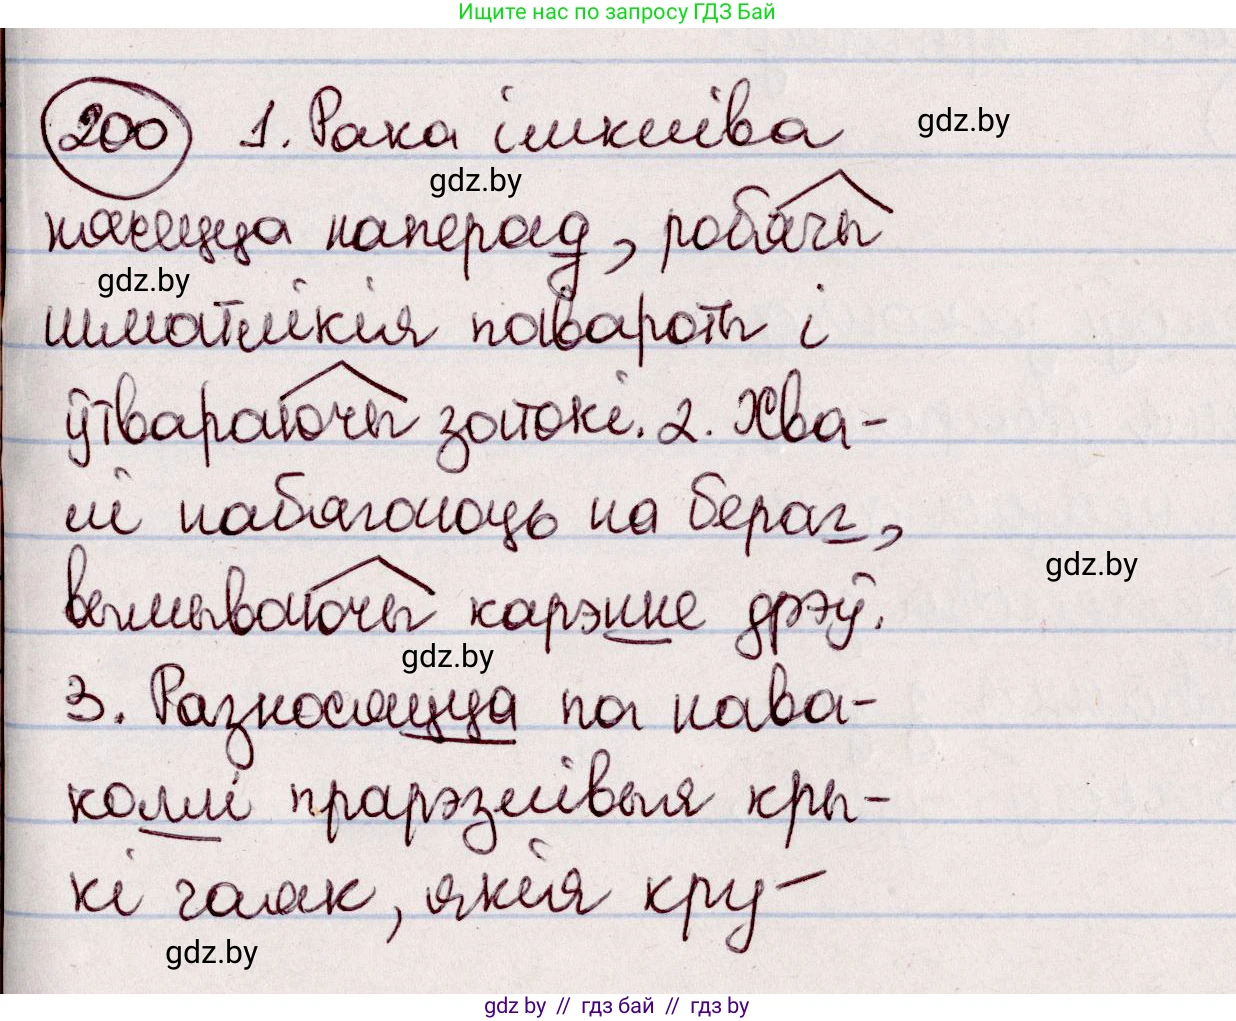 Ищите нас по запросу ГДЗ Бай
200 1. Рака імкліва gdz.by
gdz.by
нясецца наперад, робячы
gdz.by
шматлікія павароты і
ўтвараючы затокі. 2. Хва-
лі набягаюць на бераг,
gdz.by
вымываючы карэнне дрэў.
gdz.by
3. Разносяцца па нава-
коллі прарэзлівыя кры-
кі чаек, якія кру-
gdz.by
gdz by // гдз бай // гдз by